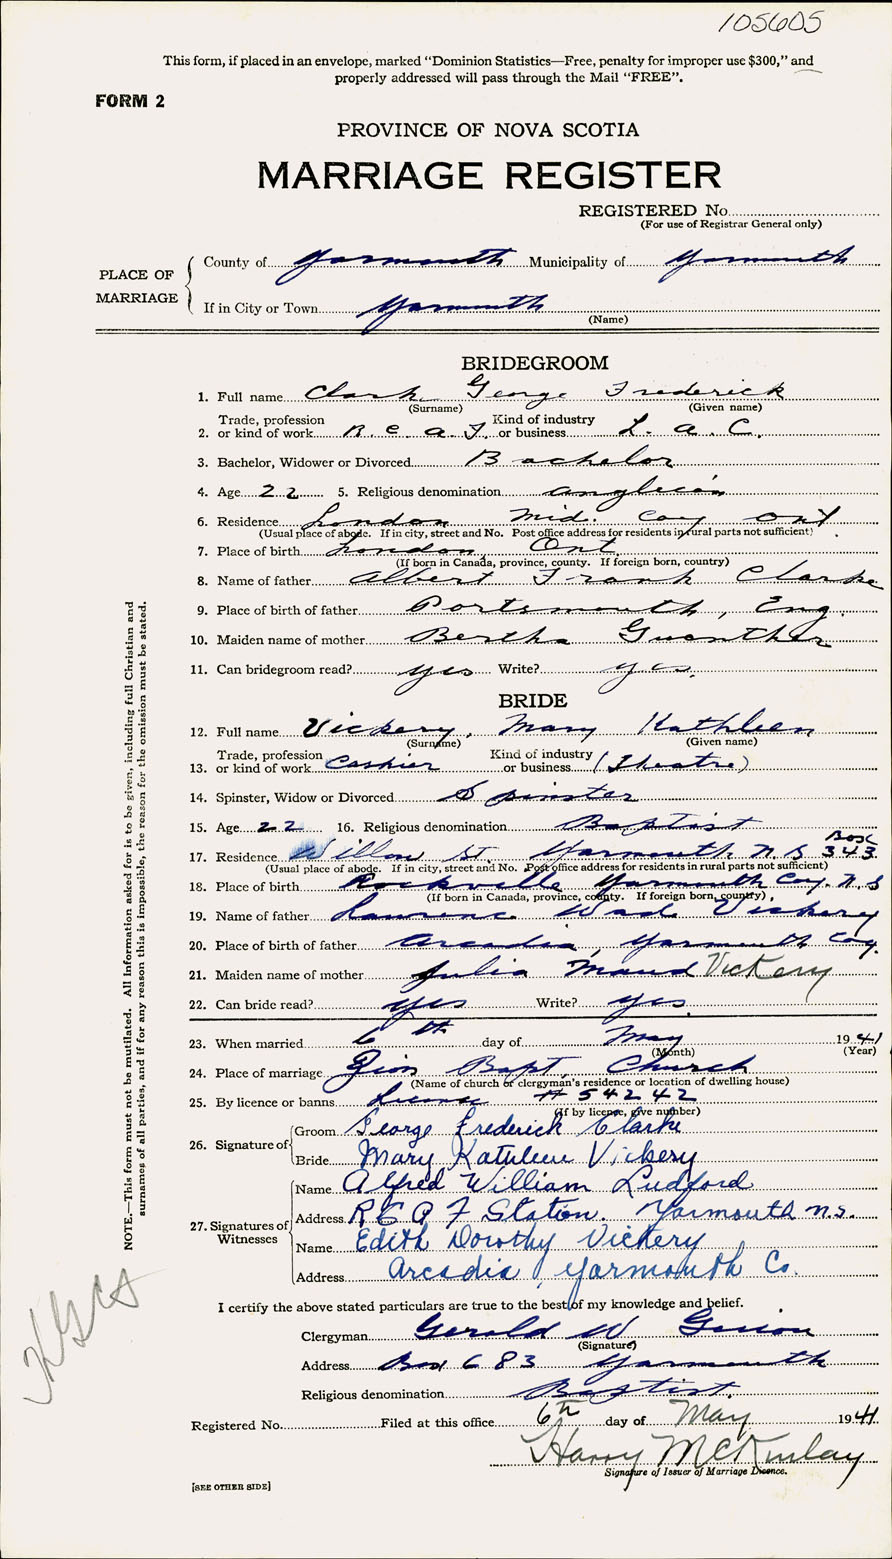 105605
This form, if placed in an envelope, marked "Dominion Statistics—Free, penalty for improper use $300," and
properly addressed will pass through the Mail "FREE".
FORM 2
PROVINCE OF NOVA SCOTIA
MARRIAGE REGISTER
REGISTERED No.
(For use of Registrar General only)
PLACE OF MARRIAGE
County of Yarmouth Municipality of Yarmouth
If in City or Town Yarmouth
(Name)
BRIDEGROOM
1. Full name Clark George Frederick
(Surname) (Given name)
2. Trade, profession or kind of work R.C.A.F. Kind of industry or business L.A.C.
3. Bachelor, Widower or Divorced Bachelor
4. Age 22 5. Religious denomination Anglican
6. Residence London Mid. Coy Ont
(Usual place of abode. If in city, street and No. Post office address for residents in rural parts not sufficient)
7. Place of birth London, Ont.
(If born in Canada, province, county. If foreign born, country)
8. Name of father Albert Frank Clarke
9. Place of birth of father Portsmouth, Eng.
10. Maiden name of mother Bertha Guenther
11. Can bridegroom read? yes Write? yes.
BRIDE
12. Full name Vickery, Mary Kathleen
(Surname) (Given name)
13. Trade, profession or kind of work Cashier Kind of industry or business (Theatre)
14. Spinster, Widow or Divorced Spinster
15. Age 22 16. Religious denomination Baptist
17. Residence Willow St. Yarmouth N.S. Box 343
(Usual place of abode. If in city, street and No. Post office address for residents in rural parts not sufficient)
18. Place of birth Rockville Yarmouth Coy. N.S
(If born in Canada, province, county. If foreign born, country)
19. Name of father Laurence Wade Vickery
20. Place of birth of father Arcadia, Yarmouth Coy.
21. Maiden name of mother Julia Maud Vickery
22. Can bride read? yes Write? yes
23. When married 6th day of May 1941
(Month) (Year)
24. Place of marriage Zion Bapt. Church
(Name of church or clergyman's residence or location of dwelling house)
25. By licence or banns License # 54242
(If by licence, give number)
26. Signature of Groom George Frederick Clarke
Bride Mary Kathleen Vickery
27. Signatures of Witnesses
Name Alfred William Ludford
Address R C A F Station. Yarmouth N.S.
Name Edith Dorothy Vickery
Address Arcadia, Yarmouth Co.
I certify the above stated particulars are true to the best of my knowledge and belief.
Clergyman Gerald W
(Signature)
Address Box 683 Yarmouth
Religious denomination Baptist.
Registered No. Filed at this office 6th day of May 1941
Harry McKinlay
Signature of Issuer of Marriage Licence.
[SEE OTHER SIDE]
NOTE.—This form must not be mutilated. All information asked for is to be given, including full Christian and
surnames of all parties, and if for any reason this is impossible, the reason for the omission must be stated.